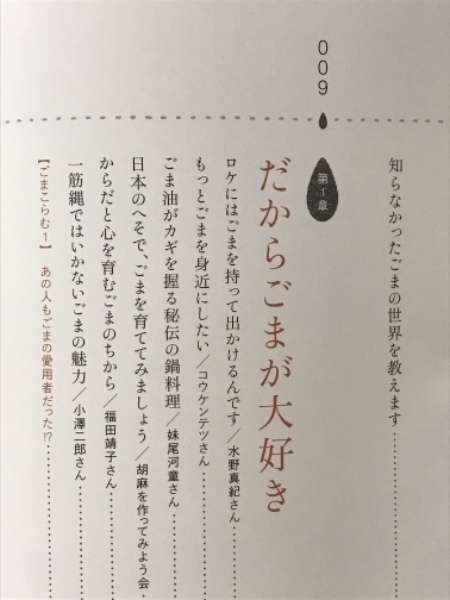 知らなかったごまの世界を教えます
009
第1章
だからごまが大好き
ロケにはごまを持って出かけるんです／水野真紀さん
もっとごまを身近にしたい／コウケンテツさん
ごま油がカギを握る秘伝の鍋料理／妹尾河童さん
日本のへそで、ごまを育ててみましょう／胡麻を作ってみよう会
からだと心を育むごまのちから／福田靖子さん
一筋縄ではいかないごまの魅力／小澤二郎さん
【ごまこらむ1】 あの人もごまの愛用者だった!?